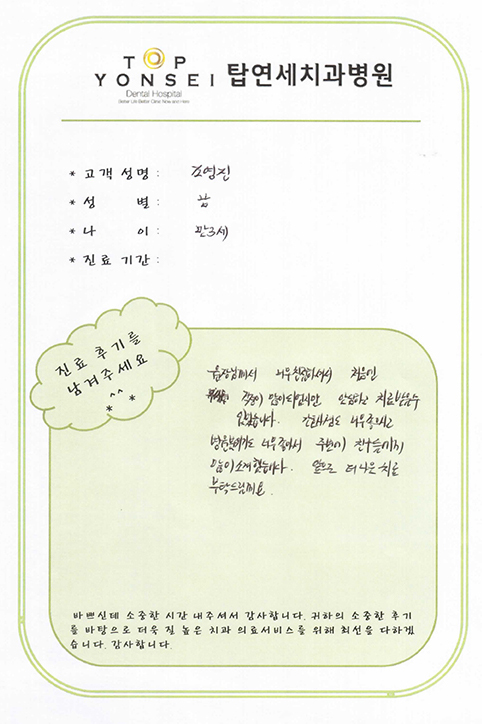 TOP
YONSEI 탑연세치과병원
Dental Hospital
Better Life Better Clinic Now and Here
* 고객 성명 : 조영진
* 성 별 : 남
* 나 이 : 만3세
* 진료 기간 :
진료 후기를
남겨주세요
^^
* *
원장님께서 너무 친절하셔서 처음인
걱정이 많이 되었지만 안심하고 치료받을수
있었습니다. 간호사분도 너무 좋으시고
병원분위기도 너무 좋아서 주변에 친구들에게
많이 소개했습니다. 앞으로 더 나은 치료
부탁드립니다.
바쁘신데 소중한 시간 내주셔서 감사합니다. 귀하의 소중한 후기
를 바탕으로 더욱 질 높은 치과 의료서비스를 위해 최선을 다하겠
습니다. 감사합니다.